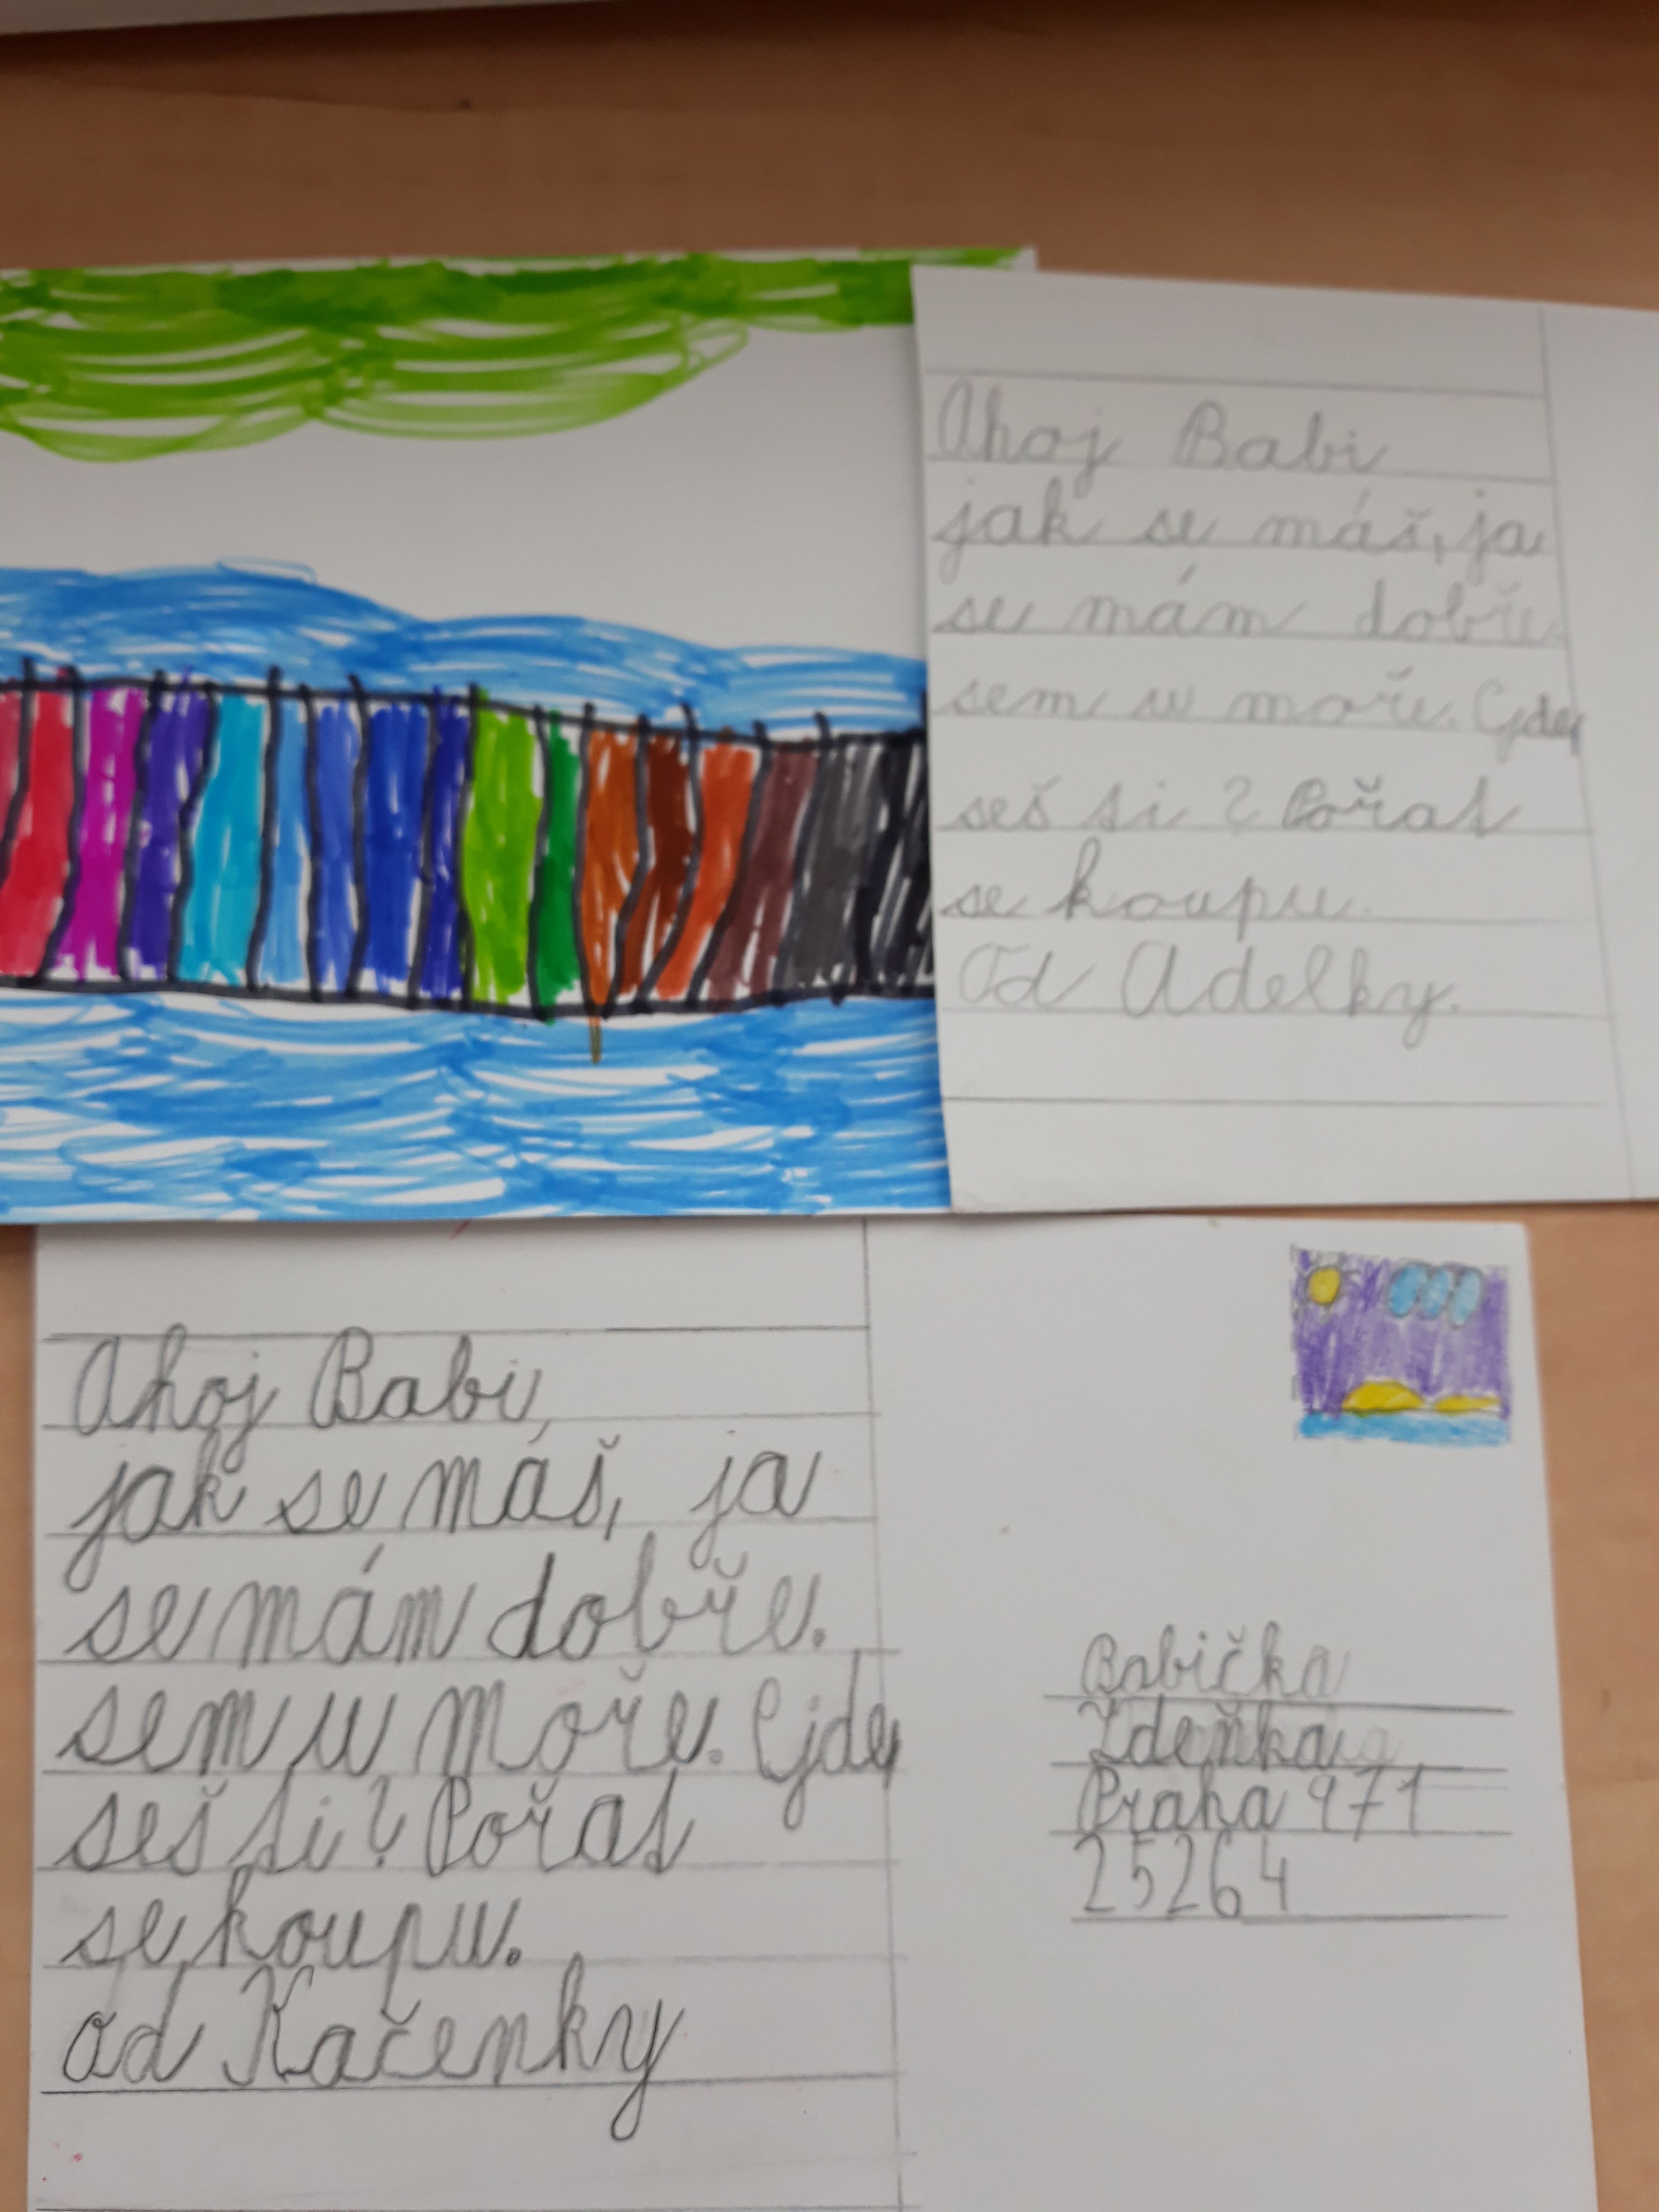 Ahoj Babi
jak se máš, ja
se mám dobře.
sem u moře. Gjdej
seš ti? Pořat
se koupu.
Od Adelky.
Ahoj Babi,
jak se máš, ja
se mám dobře.
sem u moře. Gjdej
seš ti? Pořat
se koupu.
od Kačenky
Babička
Zdeňka
Praha 971
25264